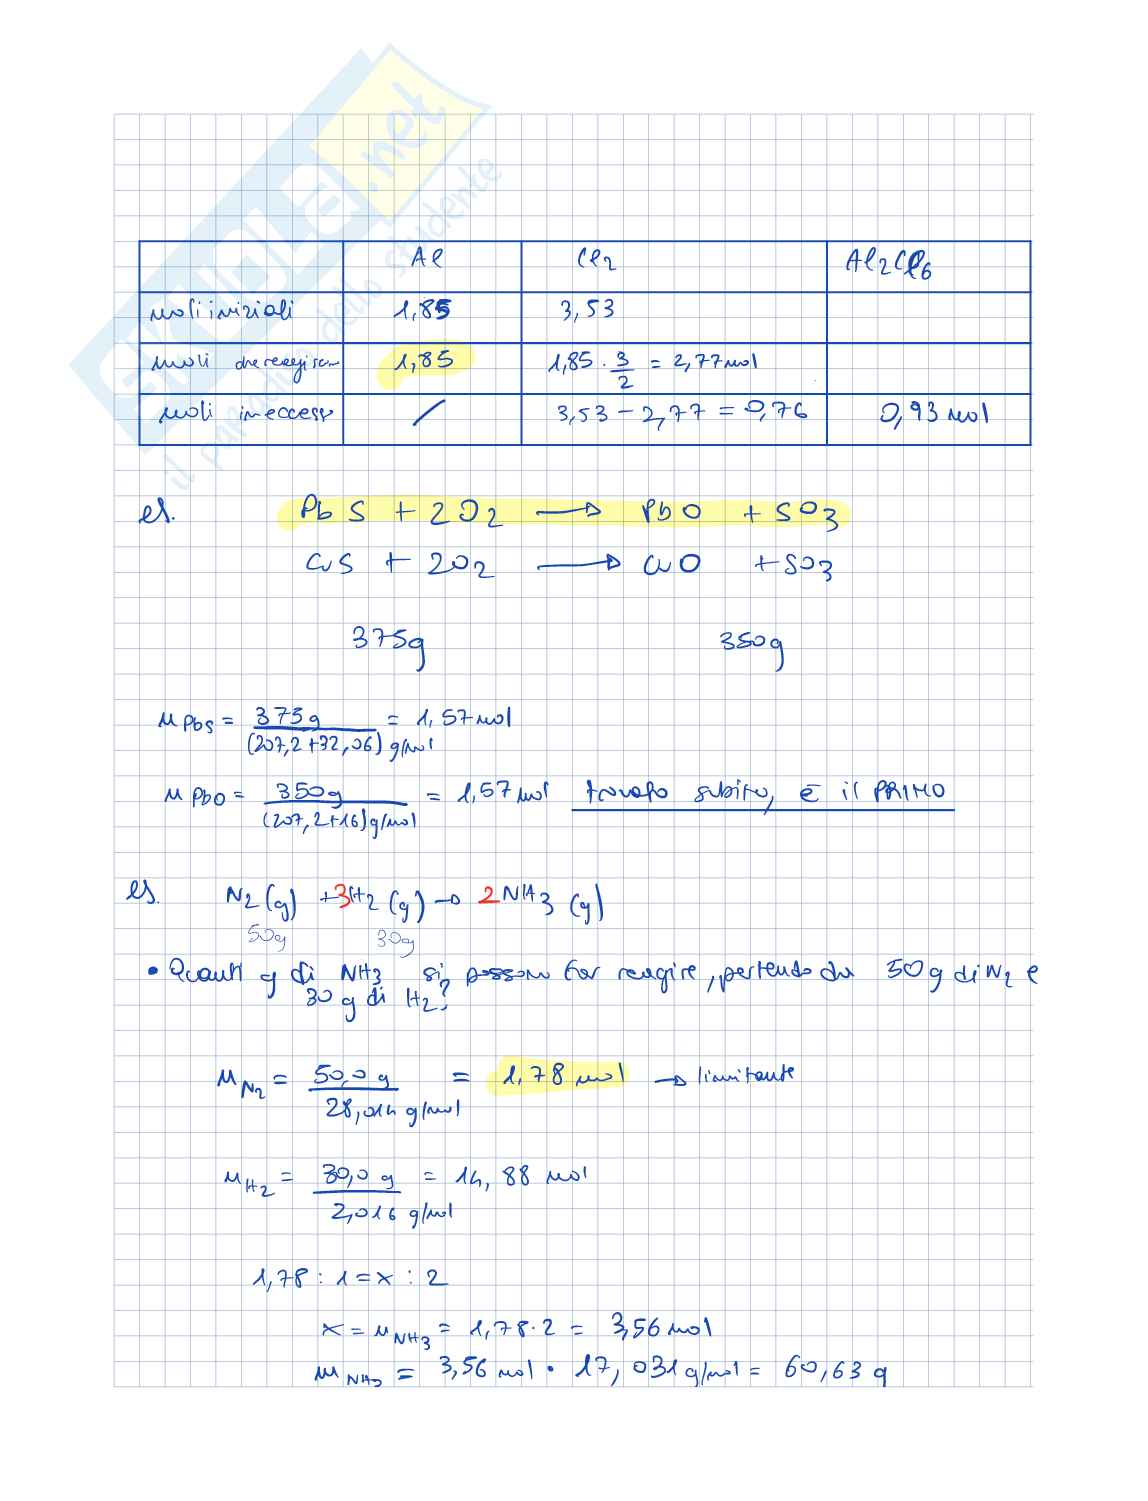 SKUOLA.net
il paradiso dello studente
Al Cl2 Al2Cl6
moli iniziali 1,85 3,53
moli che reagiscon 1,85 1,85 · 3/2 = 2,77 mol
moli in eccesso / 3,53 - 2,77 = 0,76 0,93 mol
es. PbS + 2O2 → PbO + SO3
CuS + 2O2 → CuO + SO3
375g 350g
n PbS = 375g / (207,2+32,06) g/mol = 1,57 mol
n PbO = 350g / (207,2+16) g/mol = 1,57 mol trovato subito, è il PRIMO
es. N2 (g) + 3H2 (g) → 2NH3 (g)
50g 30g
• Quanti g di NH3 si possono far reagire, partendo da 50g di N2 e
30 g di H2?
n N2 = 50,0 g / 28,014 g/mol = 1,78 mol → limitante
n H2 = 30,0 g / 2,016 g/mol = 14,88 mol
1,78 : 1 = x : 2
x = n NH3 = 1,78 · 2 = 3,56 mol
m NH3 = 3,56 mol · 17,031 g/mol = 60,63 g